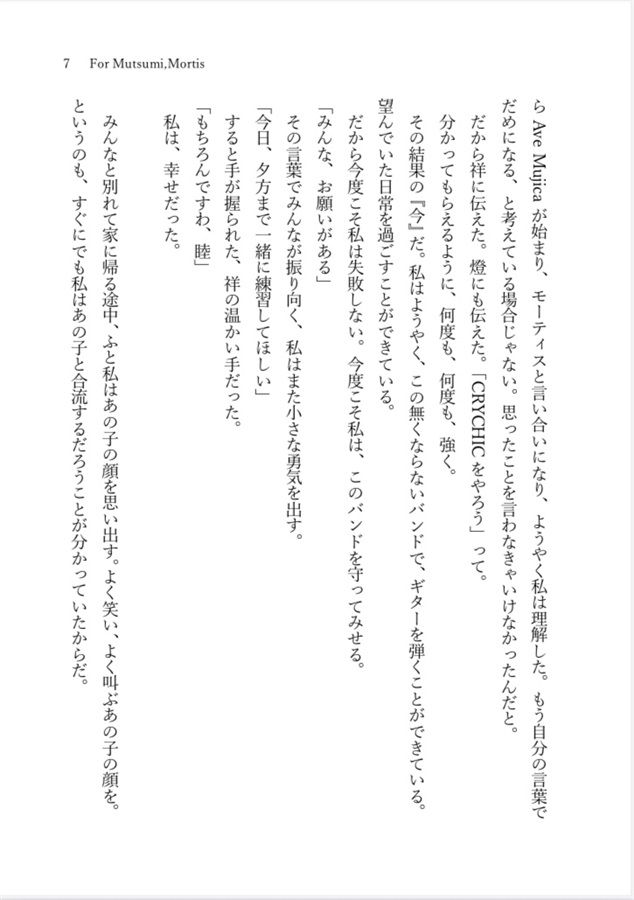 7 For Mutsumi,Mortis
ら Ave Mujica が始まり、モーティスと言い合いになり、ようやく私は理解した。もう自分の言葉で
だめになる、と考えている場合じゃない。思ったことを言わなきゃいけなかったんだと。
だから祥に伝えた。燈にも伝えた。「CRYCHIC をやろう」って。
分かってもらえるように、何度も、何度も、強く。
その結果の『今』だ。私はようやく、この無くならないバンドで、ギターを弾くことができている。
望んでいた日常を過ごすことができている。
だから今度こそ私は失敗しない。今度こそ私は、このバンドを守ってみせる。
「みんな、お願いがある」
その言葉でみんなが振り向く、私はまた小さな勇気を出す。
「今日、夕方まで一緒に練習してほしい」
すると手が握られた、祥の温かい手だった。
「もちろんですわ、睦」
私は、幸せだった。
みんなと別れて家に帰る途中、ふと私はあの子の顔を思い出す。よく笑い、よく叫ぶあの子の顔を。
というのも、すぐにでも私はあの子と合流するだろうことが分かっていたからだ。